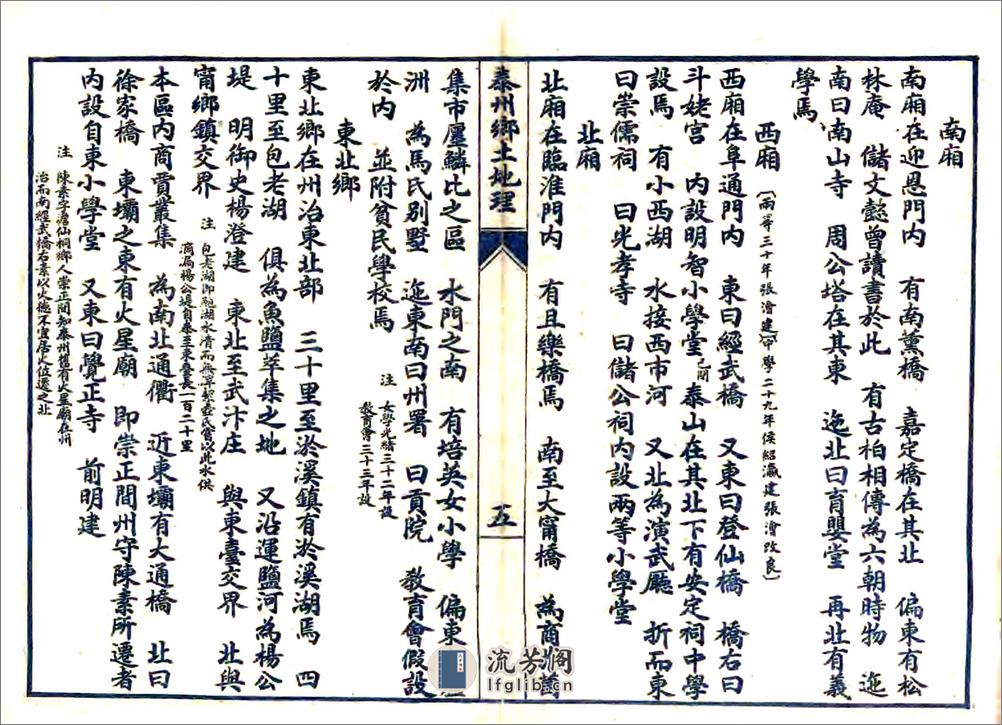 南廂
南廂在迎恩門內 有南薰橋 嘉定橋在其北 偏東有松
林庵 儲文懿曾讀書於此 有古柏相傳為六朝時物 迤
南曰南山寺 周公塔在其東 迤北曰育嬰堂 再北有義
學焉
西廂
西廂在阜通門內 東曰經武橋 又東曰登仙橋 橋右曰
斗姥宮 內設明智小學堂已閉 泰山在其北下有安定祠中學
設焉 有小西湖 水接西市河 又北為演武廳 折而東
曰崇儒祠 曰光孝寺 曰儲公祠內設兩等小學堂
（兩等三十年張澮建）（中學二十九年侯紹瀛建張澮改良）
北廂
北廂在臨淮門內 有且樂橋焉 南至大甯橋 為商
泰州鄉土地理
五
集市廛鱗比之區 水門之南 有培英女小學 偏東
洲 為馬氏別墅 迤東南曰州署 曰貢院 教育會假設
於內 並附貧民學校焉 注 女學光緒三十二年設
教育會二十三年設
東北鄉
東北鄉在州治東北部 三十里至於溪鎮有於溪湖焉 四
十里至包老湖 俱為魚鹽萃集之地 又沿運鹽河為楊公
堤 明御史楊澄建 東北至武汴庄 與東臺交界 北與
甯鄉鎮交界 注 包老湖即鮑湖水清而無草
商漏楊公堤自泰至東臺長一百二十里
本區內商賈叢集 為南北通衢 近東壩有大通橋 北曰
徐家橋 東壩之東有火星廟 即崇正間州守陳素所遷者
內設自東小學堂 又東曰覺正寺 前明建
注 陳素字澹仙桐鄉人崇正間知泰州舊有火星廟在州
治而南經武橋右素以火德不宜居火位遷之北